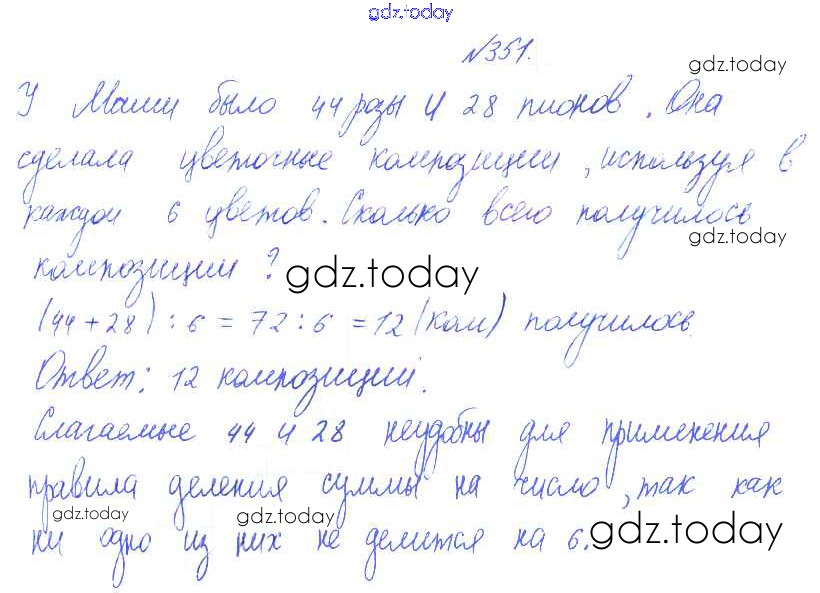 gdz.today
№351.
gdz.today
У Маши было 44 розы и 28 пионов. Она
сделала цветочные композиции, используя в
каждой 6 цветов. Сколько всего получилось
gdz.today
композиций?
gdz.today
(44 + 28) : 6 = 72 : 6 = 12 (ком) получилось.
Ответ: 12 композиций.
Слагаемые 44 и 28 неудобны для применения
правила деления суммы на число, так как
gdz.today
gdz.today
ни одно из них не делится на 6.
gdz.today